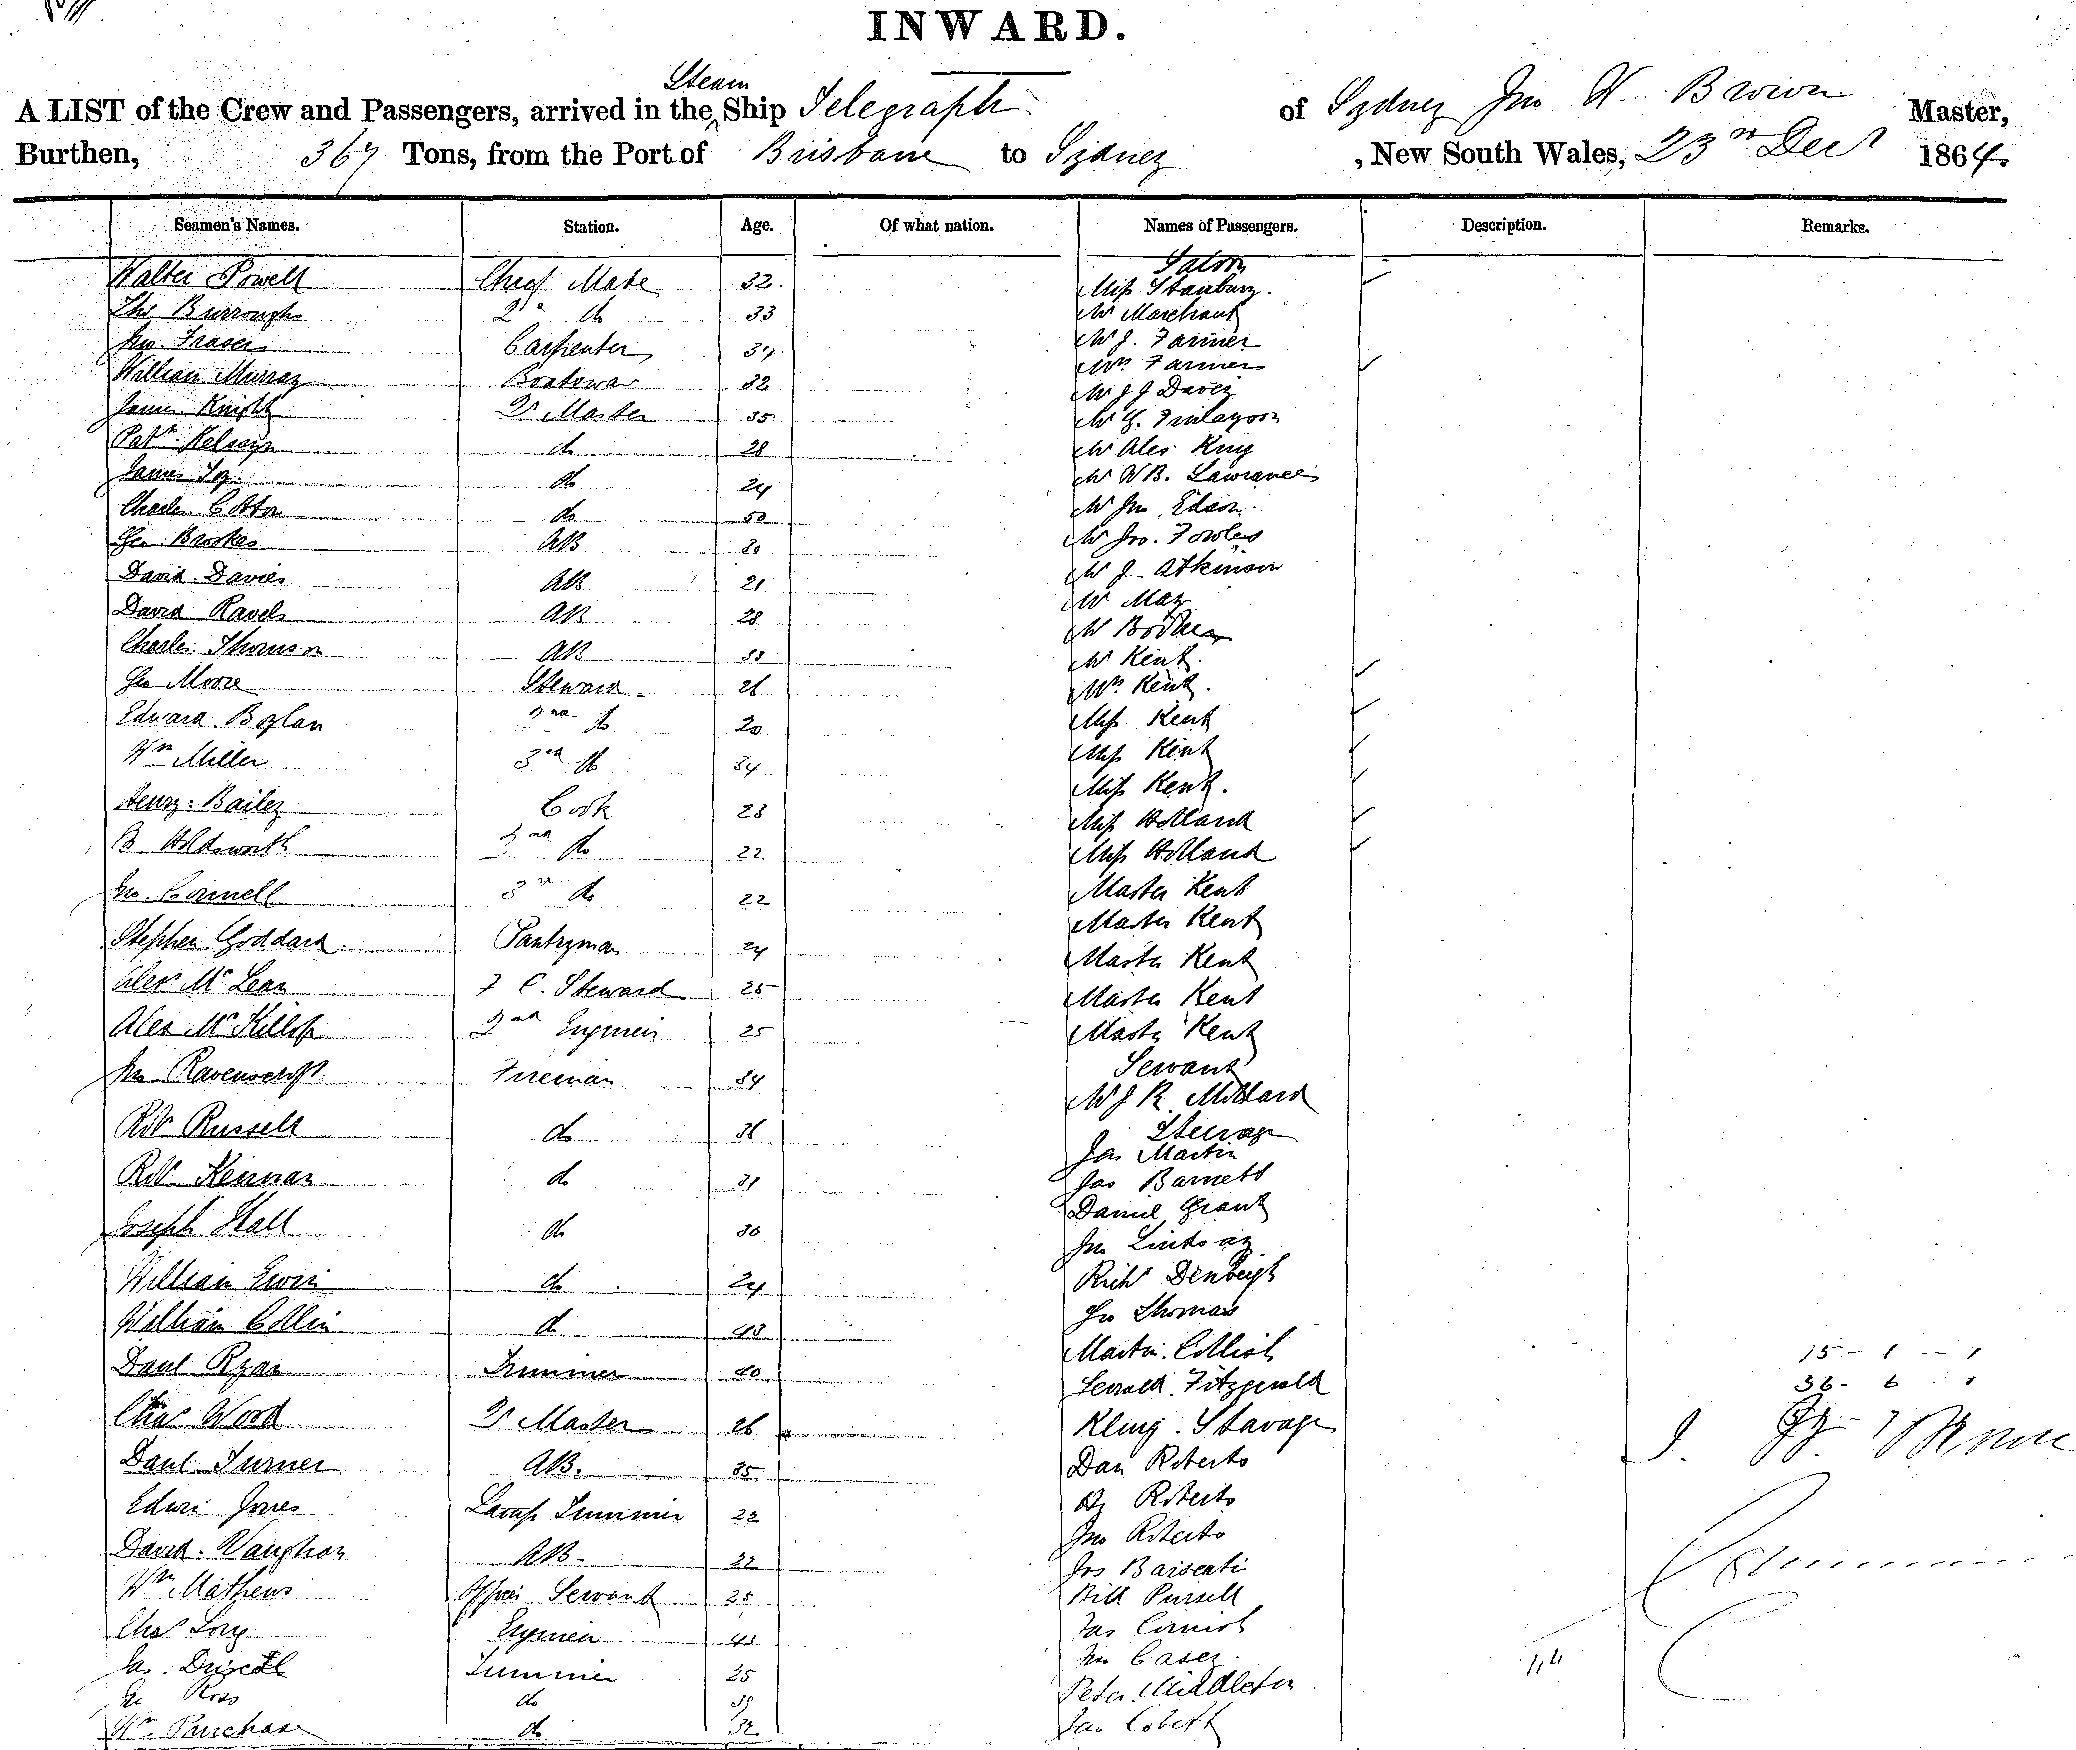 INWARD.
Steam
A LIST of the Crew and Passengers, arrived in the Ship Telegraph of Sydney Jno W. Brown Master,
Burthen, 367 Tons, from the Port of Brisbane to Sydney, New South Wales, 23rd Decr 1864.
Seamen's Names. Station. Age. Of what nation. Names of Passengers. Description. Remarks.
Saloon
Walter Powell Chief Mate 32 Miss Stanbury.
Thos Burroughs 2nd do 33 Mr Marchant
Jno Fraser Carpenter 34 Mr J. Farmer
Mrs Farmer
William Murray Boatswan 32 Mr J J Davey
James Knight Qr Master 35 Mr G. Finlayson
Patk do 28 Mr Alex King
James do 24 Mr W B. Lawrance
Charles Cotton do 50 Mr Jno
Geo Brookes AB 20 Mr Jno. Fowles
David Davies AB 21 Mr J. Atkinson
Mr May
David Ravels AB 28 Mr
Charles Thomson AB Mr Kent.
Geo Moore Steward 26 Mrs Kent.
Edward Boylan 2nd do 20 Miss Kent
Wm Miller 3rd do 34 Miss Kent
Miss Kent.
Henry Bailey Cook 28 Miss Holland
B Holdsworth 2nd do 22 Miss Holland
Jno. Connell 3rd do 22 Master Kent
Master Kent
Stephen Goddard Pantryman 24 Master Kent
Alex McLean F C. Steward 25 Master Kent
Alex McKillop 2nd Engineer 25 Master Kent
Servant
Jno Ravenscroft Fireman 34 Mr J R Millard
Steerage
Robt Russell do 36 Jas Martin
Robt Keenan do 31 Jas Barnett
Daniel Grant
Joseph Hall do 30 Jno Lindsay
William Erwin do 24 Richd Denbeigh
Jno Thomas
William Collin do 40 Martin
Danl Ryan Trimmer 40 Gerrald Fitzgerald
15 - 1 - 1
36 - 6
Chas Wood Qr Master 26 Kling. Stavage
Danl Turner AB. 35 Dan Roberts
Edwin Jones Lamp Trimmer 22 Roberts
Jno Roberts
David. Vaughan AB 22 Jos
Wm Mathews Officers Servant 25 Bill Pursell
Chas Engineer 43 Jas Cornish
Jas. Driscoll Trimmer 25 Jno Casey.
Geo Ross do 39 Peter Middleton
Wm Purchase do 32 Jas Cobett